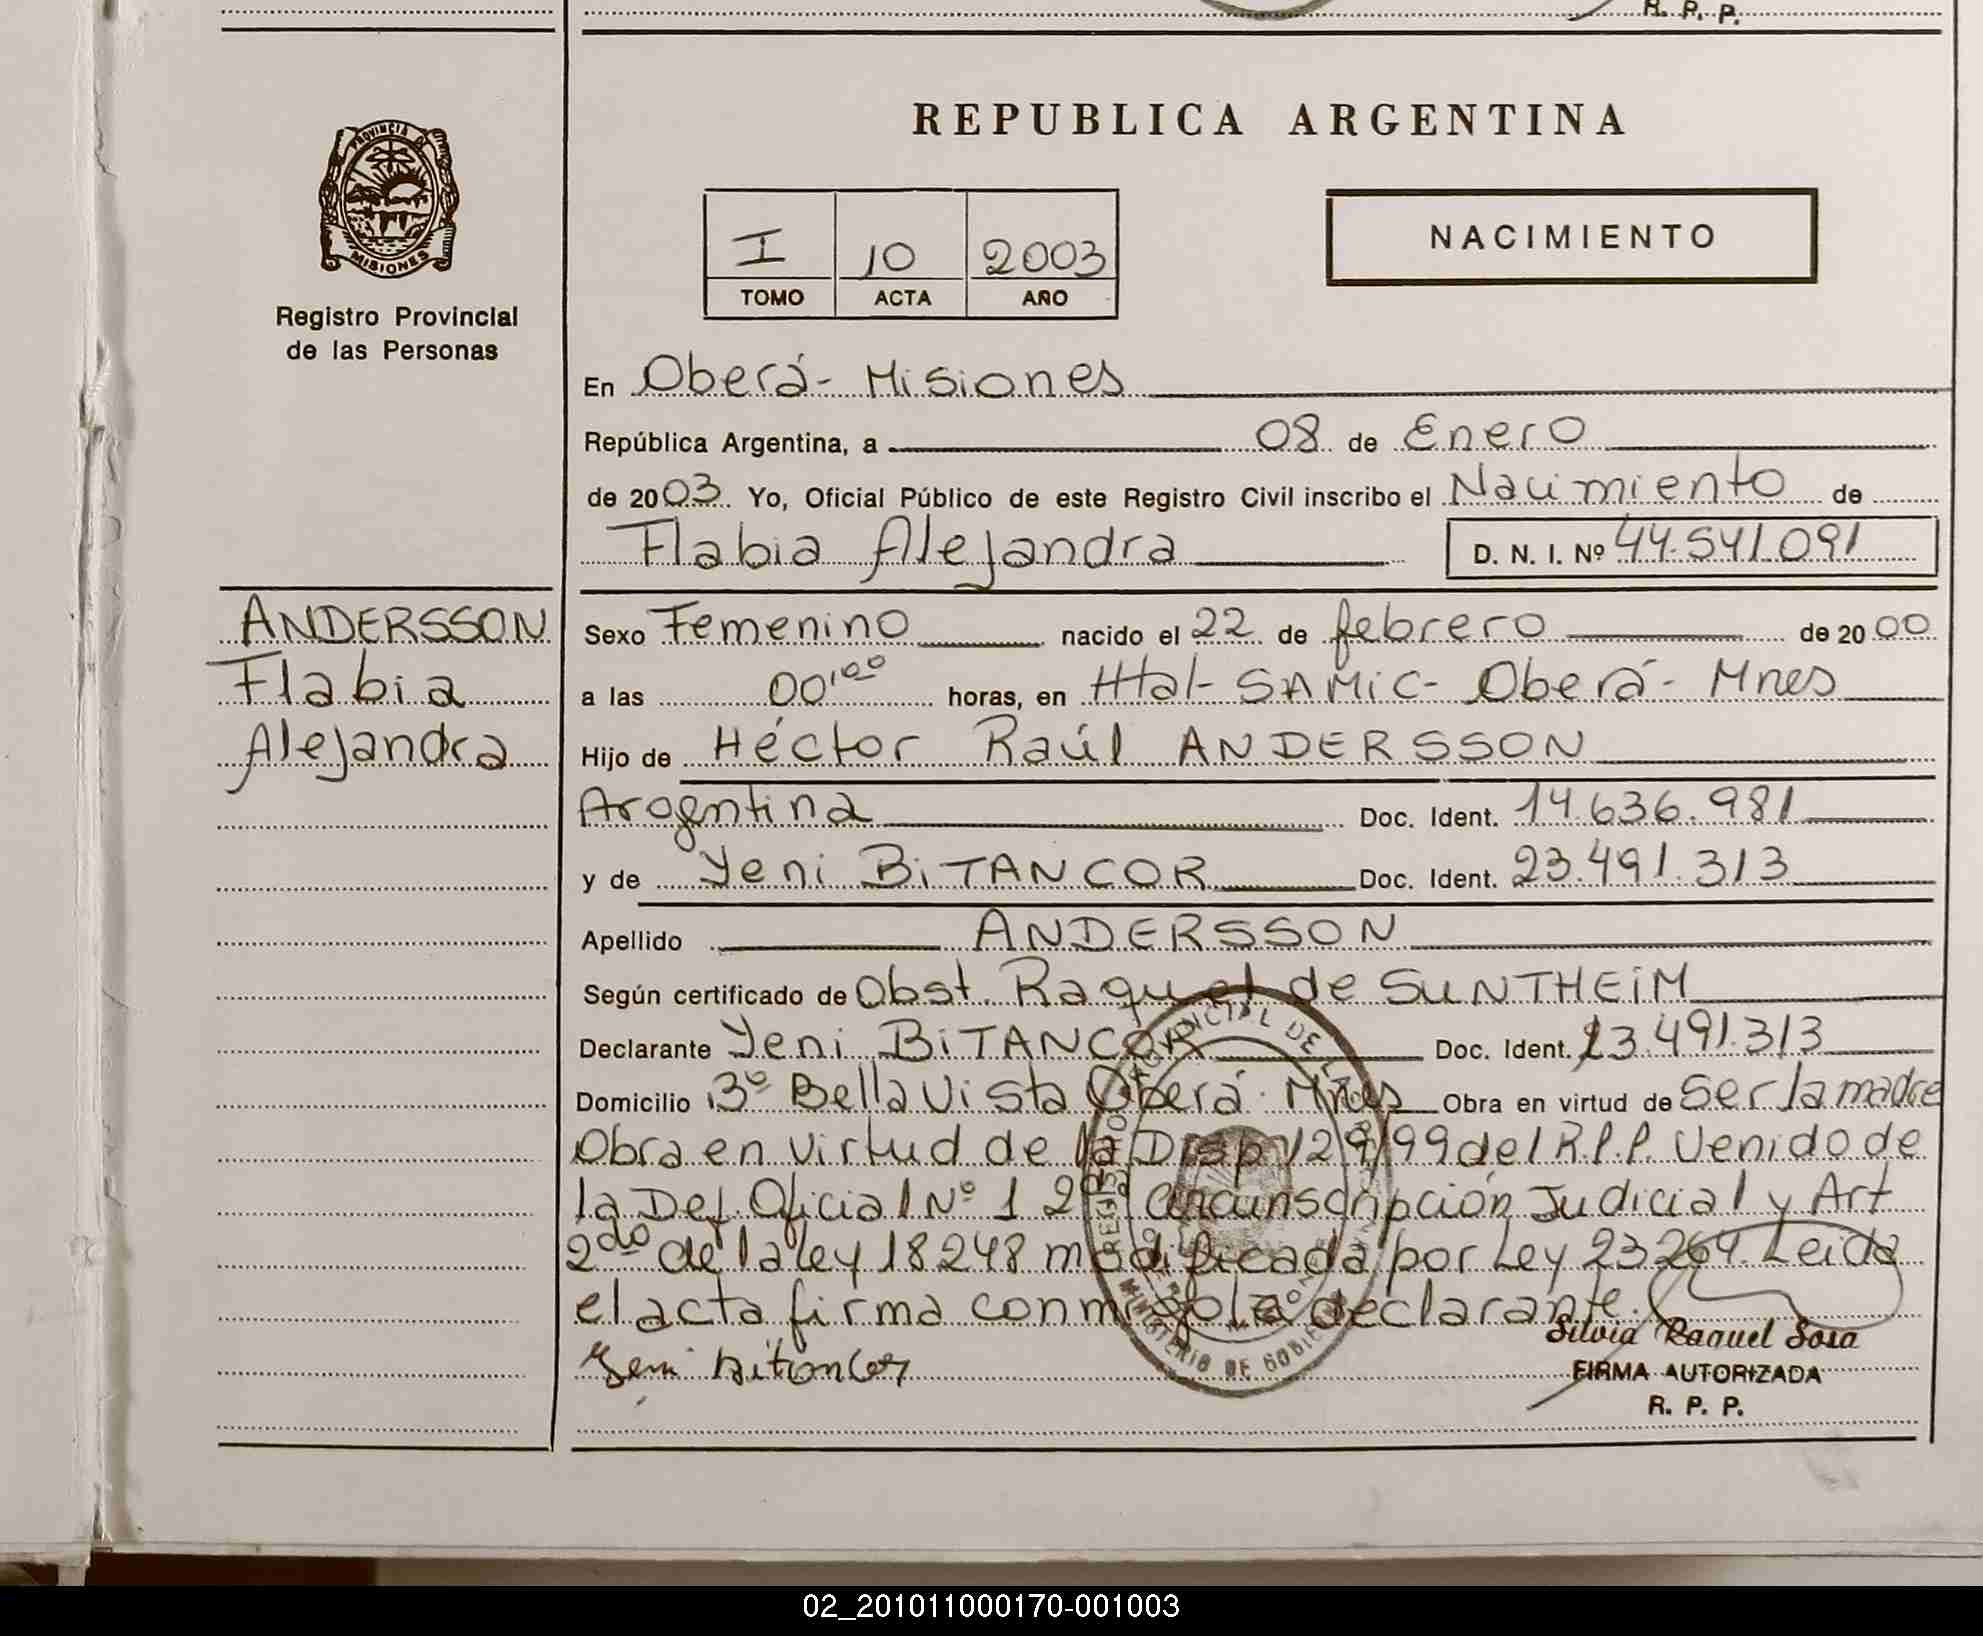 R. P. P.
PROVINCIA DE
MISIONES
Registro Provincial
de las Personas
REPUBLICA ARGENTINA
I 10 2003
TOMO ACTA AÑO
NACIMIENTO
En Oberá - Misiones
República Argentina, a 08 de Enero
de 2003. Yo, Oficial Público de este Registro Civil inscribo el Nacimiento de
Flabia Alejandra D. N. I. Nº 44.541.091
ANDERSSON
Flabia
Alejandra
Sexo Femenino nacido el 22 de febrero de 2000
a las 00'00 horas, en Htal - SAMIC - Oberá - Mnes
Hijo de Héctor Raúl ANDERSSON
Argentina Doc. Ident. 14.636.981
y de Yeni BiTANCOR Doc. Ident. 23.491.313
Apellido ANDERSSON
Según certificado de Obst. Raquel de SUNTHEiM
Declarante Yeni BiTANCOR Doc. Ident. 23.491.313
Domicilio Bº Bella Vista Oberá - Mnes Obra en virtud de ser la madre
Obra en virtud de la Disp 129/99 del R.P.P. Venido de
la Def. Oficial Nº 1 2da Circunscripción Judicial y Art
2do de la ley 18248 modificada por Ley 23264. Leida
el acta firma conmigo la declarante.
Yeni Bitancor
Silvia Raquel Sosa
FIRMA AUTORIZADA
R. P. P.
MINISTERIO DE GOBIE
02_201011000170-001003